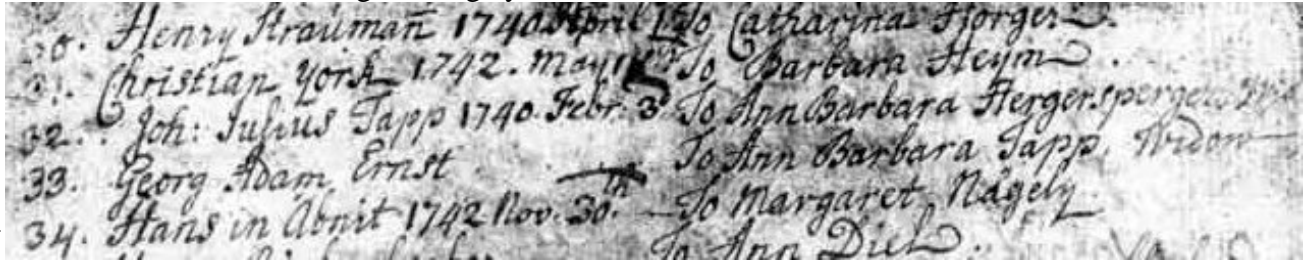 30. Henry Straumañ 1740 April To Catharina Horger.
31. Christian York 1742. May To Barbara Heym.
32. Joh: Julius Tapp 1740. Febr. 3. To Ann Barbara Hergersperger
33. Georg Adam Ernst To Ann Barbara Tapp, Widow
34. Hans in Abnit 1742 Nov. 30th To Margaret Nägely.
To Ann Diel.